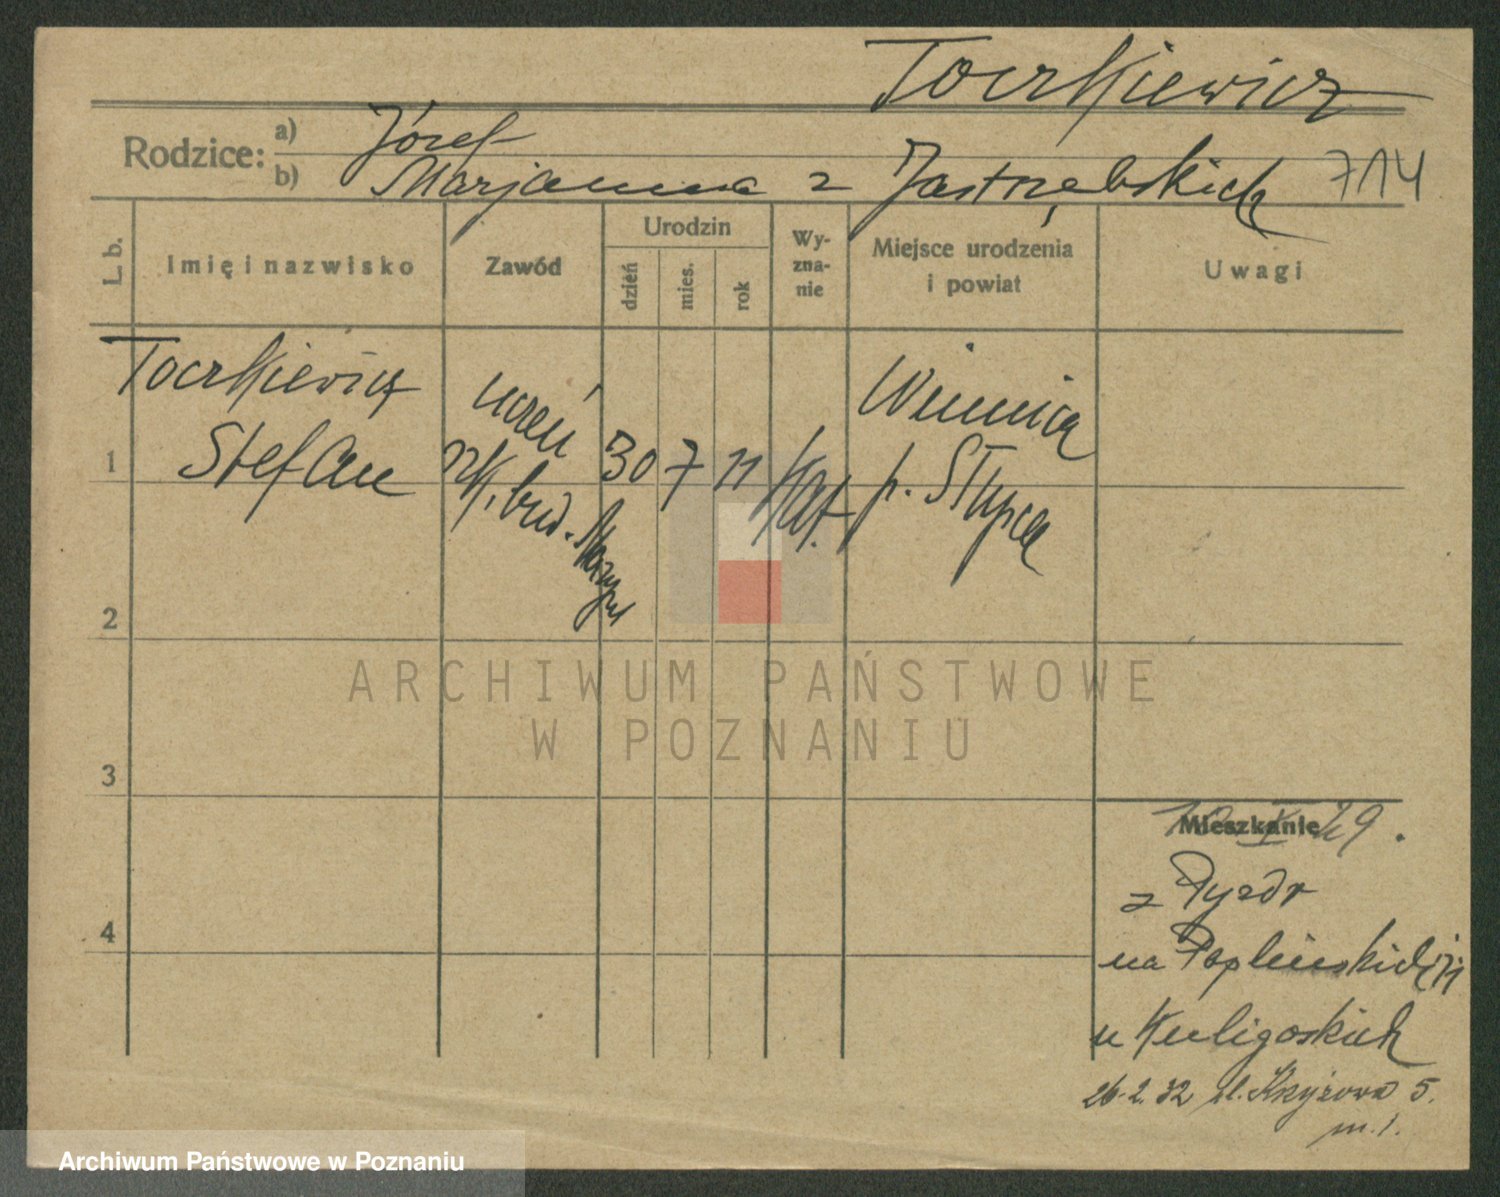 Toczkiewicz
Rodzice: a) Józef
b) Marjanna z Jastrzębskich 714
L. b. Imię i nazwisko Zawód Urodzin dzień mies. rok Wy-zna-nie Miejsce urodzenia i powiat Uwagi
Toczkiewicz uczeń Winnica
1 Stefan bud. 30 7 11 kat. p. Słupca
2
3
4
Mieszkanie 29.
z Pyzdr
na Poplińskich
u Kuligoskich
26.2.32 ul. Krzyżowa 5.
m. 1.
ARCHIWUM PAŃSTWOWE
W POZNANIU
Archiwum Państwowe w Poznaniu